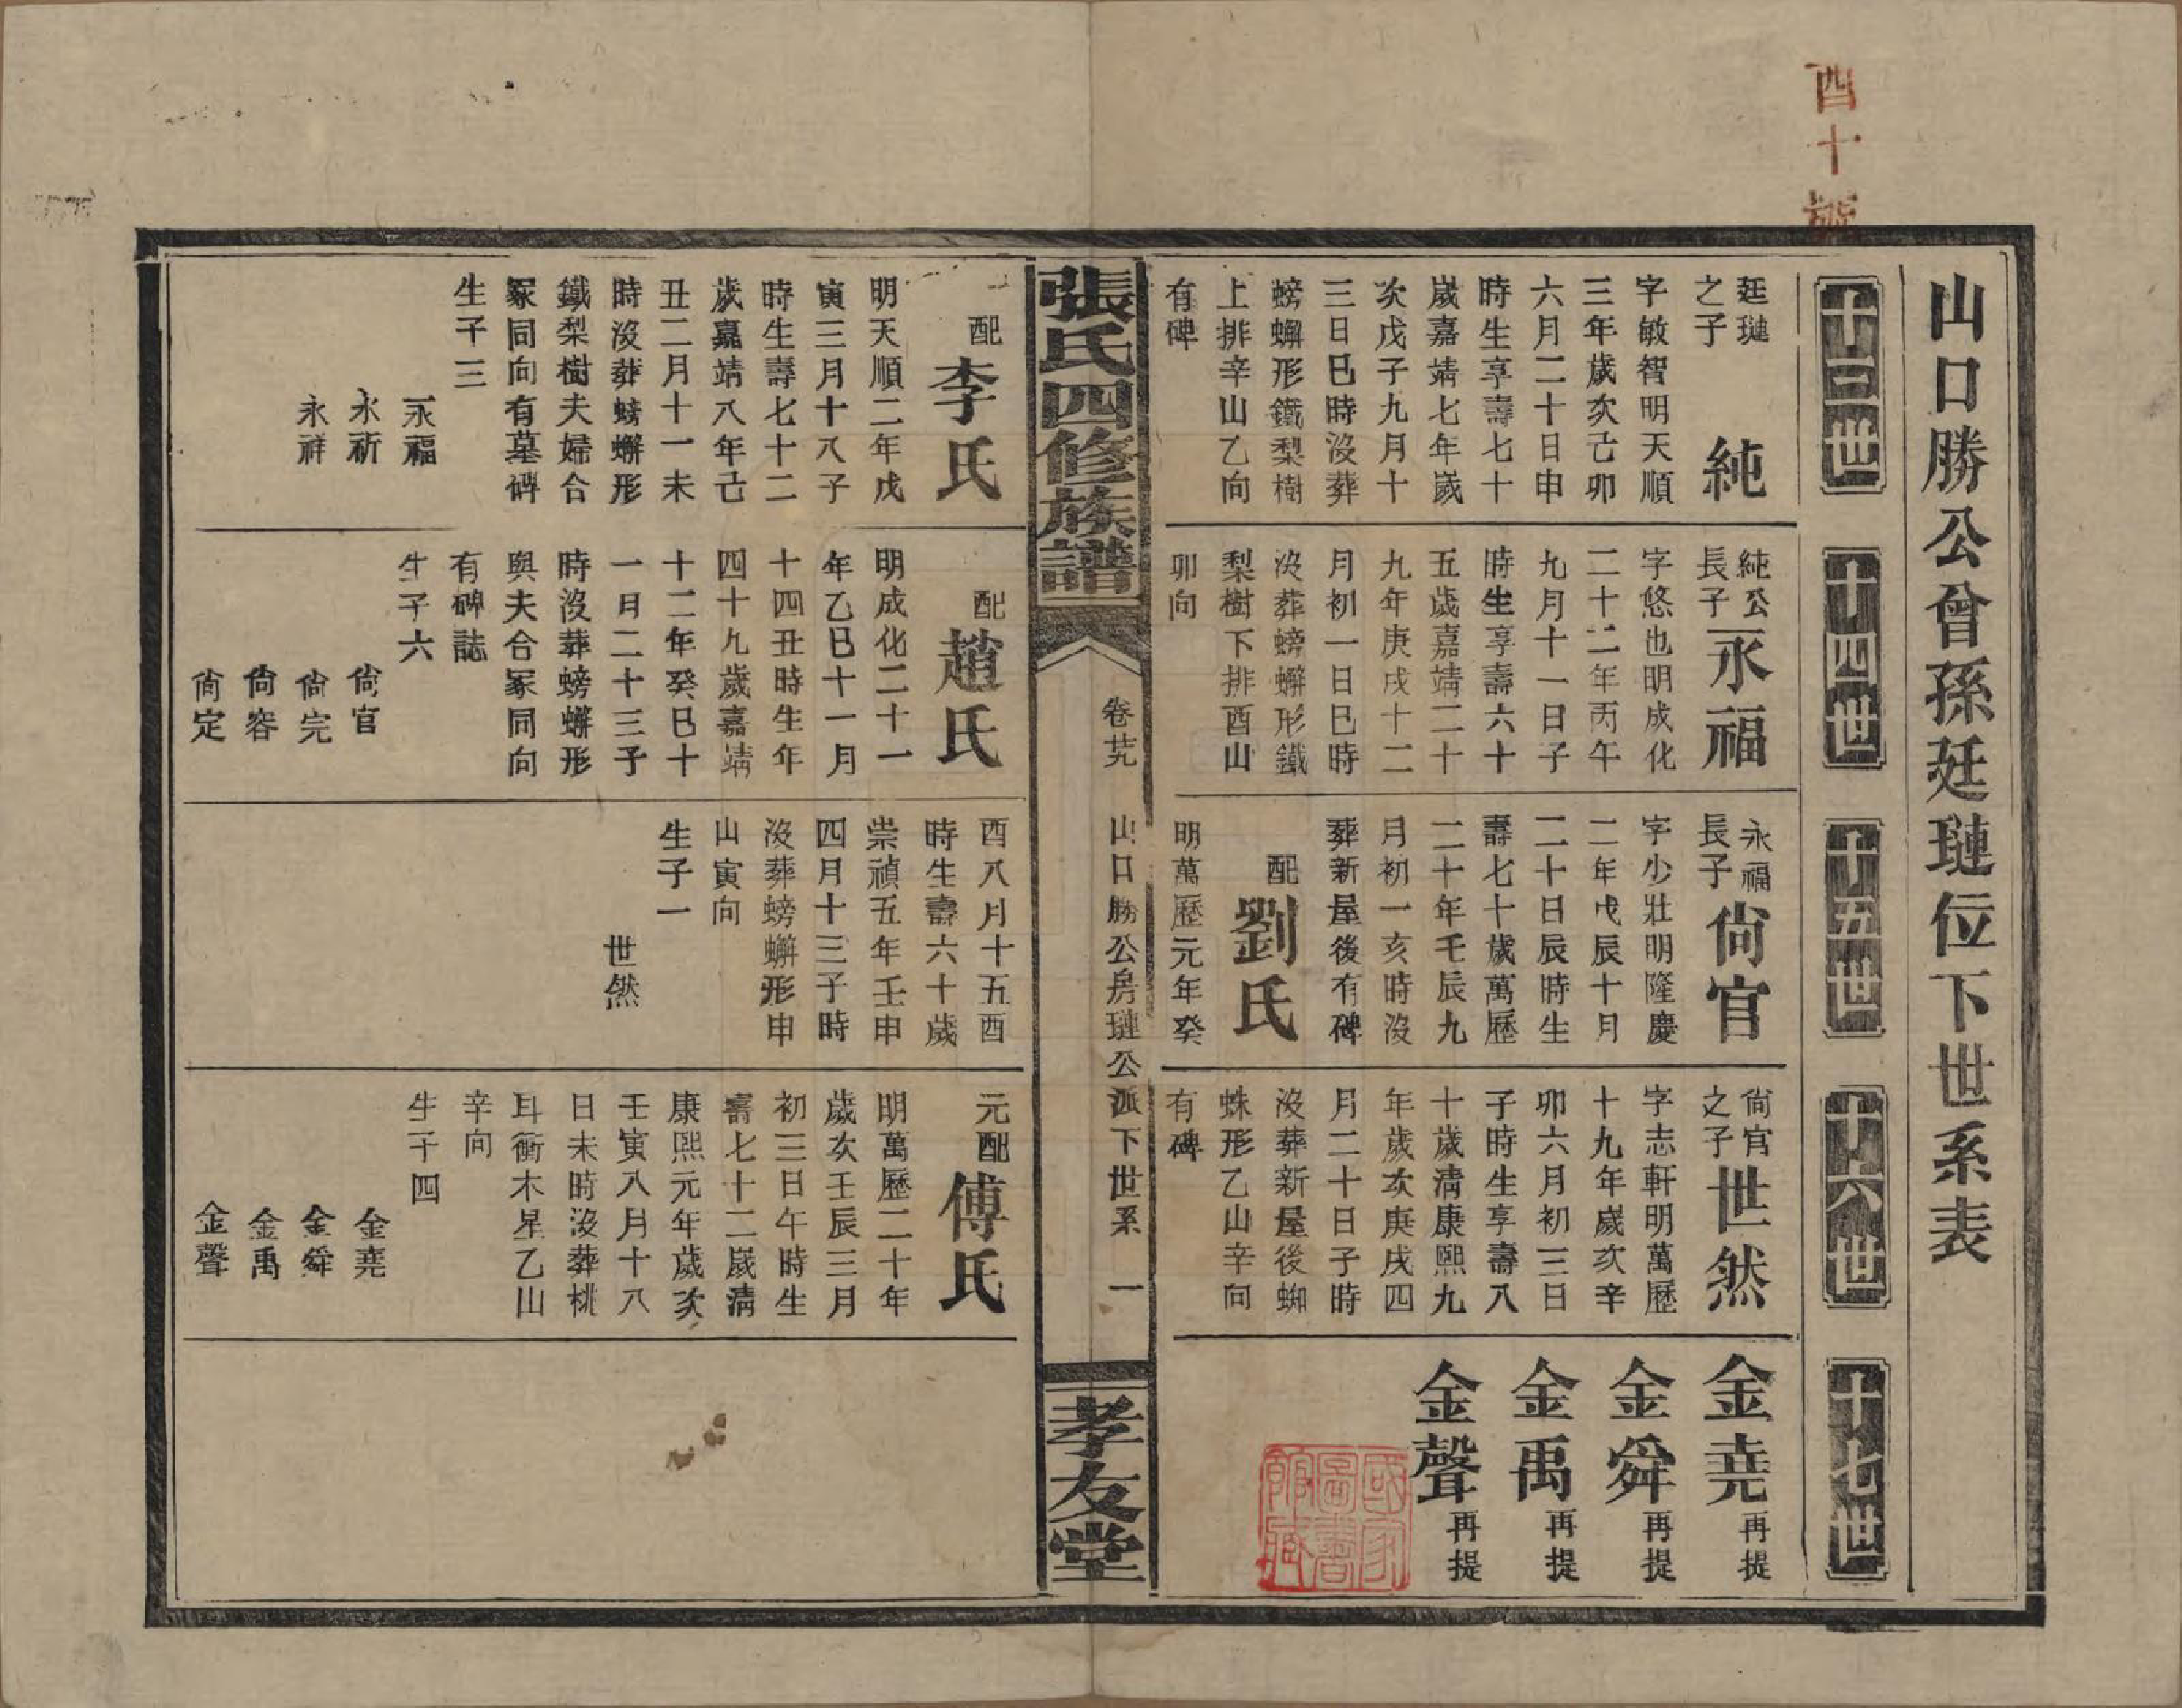 四十號
山口勝公曾孫廷璉位下世系表
十三世
十四世
十五世
十六世
十七世
廷璉
之子
純
字敏智明天順
三年歲次己卯
六月二十日申
時生享壽七十
歲嘉靖七年歲
次戊子九月十
三日巳時沒葬
螃蠏形鐵梨樹
上排辛山乙向
有碑
純公
長子
永福
字悠也明成化
二十二年丙午
九月十一日子
時生享壽六十
五歲嘉靖二十
九年庚戌十二
月初一日巳時
沒葬螃蠏形鐵
梨樹下排酉山
卯向
永福
長子
尙官
字少壯明隆慶
二年戊辰十月
二十日辰時生
壽七十歲萬歷
二十年壬辰九
月初一亥時沒
葬新屋後有碑
配
劉氏
明萬歷元年癸
尙官
之子
世然
字志軒明萬歷
十九年歲次辛
卯六月初三日
子時生享壽八
十歲淸康熙九
年歲次庚戌四
月二十日子時
沒葬新屋後蜘
蛛形乙山辛向
有碑
金堯再提
金舜再提
金禹再提
金聲再提
國家
圖書
館藏
張氏四修族譜
卷廿九
山口勝公房璉公派下世系
一
孝友堂
配
李氏
明天順二年戊
寅三月十八子
時生壽七十二
歲嘉靖八年己
丑二月十一未
時沒葬螃蠏形
鐵梨樹夫婦合
冢同向有墓碑
生子三
永福
永祈
永祥
配
趙氏
明成化二十一
年乙巳十一月
十四丑時生年
四十九歲嘉靖
十二年癸巳十
一月二十三子
時沒葬螃蠏形
與夫合冢同向
有碑誌
生子六
尙官
尙完
尙容
尙定
酉八月十五酉
時生壽六十歲
崇禎五年壬申
四月十三子時
沒葬螃蠏形申
山寅向
生子一
世然
元配
傅氏
明萬歷二十年
歲次壬辰三月
初三日午時生
壽七十二歲淸
康熙元年歲次
壬寅八月十八
日未時沒葬桃
耳衝木星乙山
辛向
生子四
金堯
金舜
金禹
金聲